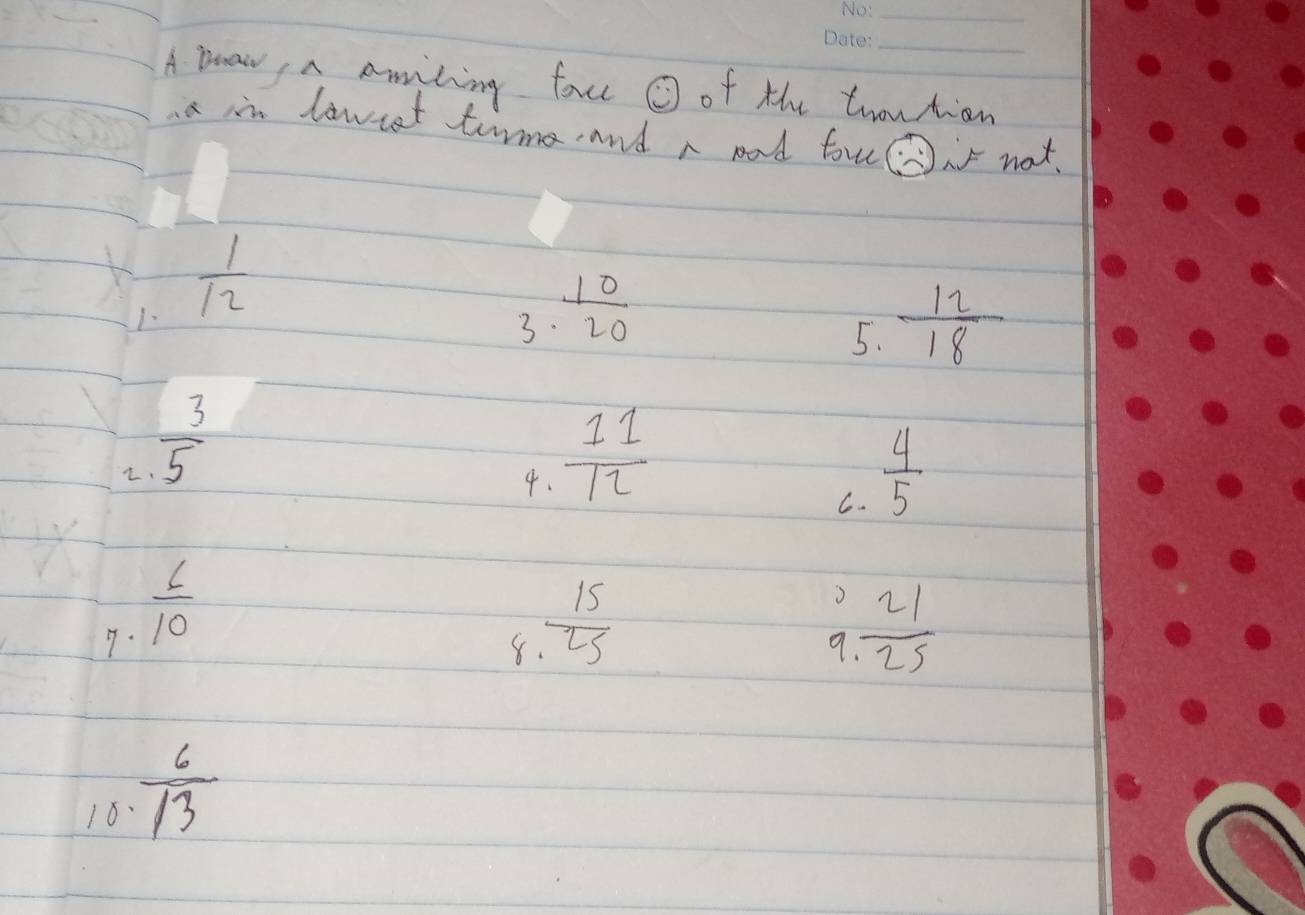 No:
Date:
A. Draw, a smiling face ☺ of the fraction
is in lowest terms. and a sad face ☹ if not.
1. 1/12
3. 10/20
5. 12/18
2. 3/5
4. 11/12
6. 4/5
7. 6/10
8. 15/25
9. 21/25
10. 6/13